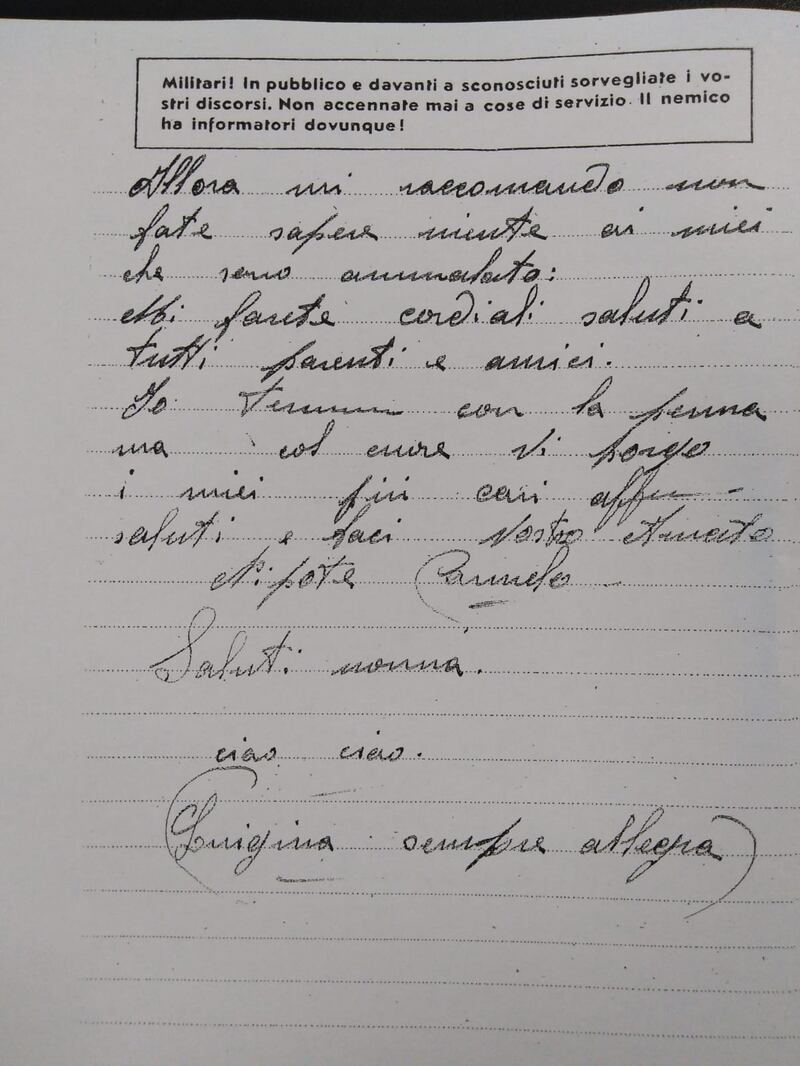 Militari! In pubblico e davanti a sconosciuti sorvegliate i vo-
stri discorsi. Non accennate mai a cose di servizio. Il nemico
ha informatori dovunque!
Allora mi raccomando non
fate sapere niente ai miei
che sono ammalato:
Mi farete cordiali saluti a
tutti parenti e amici.
Io con la penna
ma col cuore vi porgo
i miei più cari
saluti e baci Vostro Amato
Nipote Carmelo
Saluti nonna.
ciao ciao.
(Luigina sempre allegra)